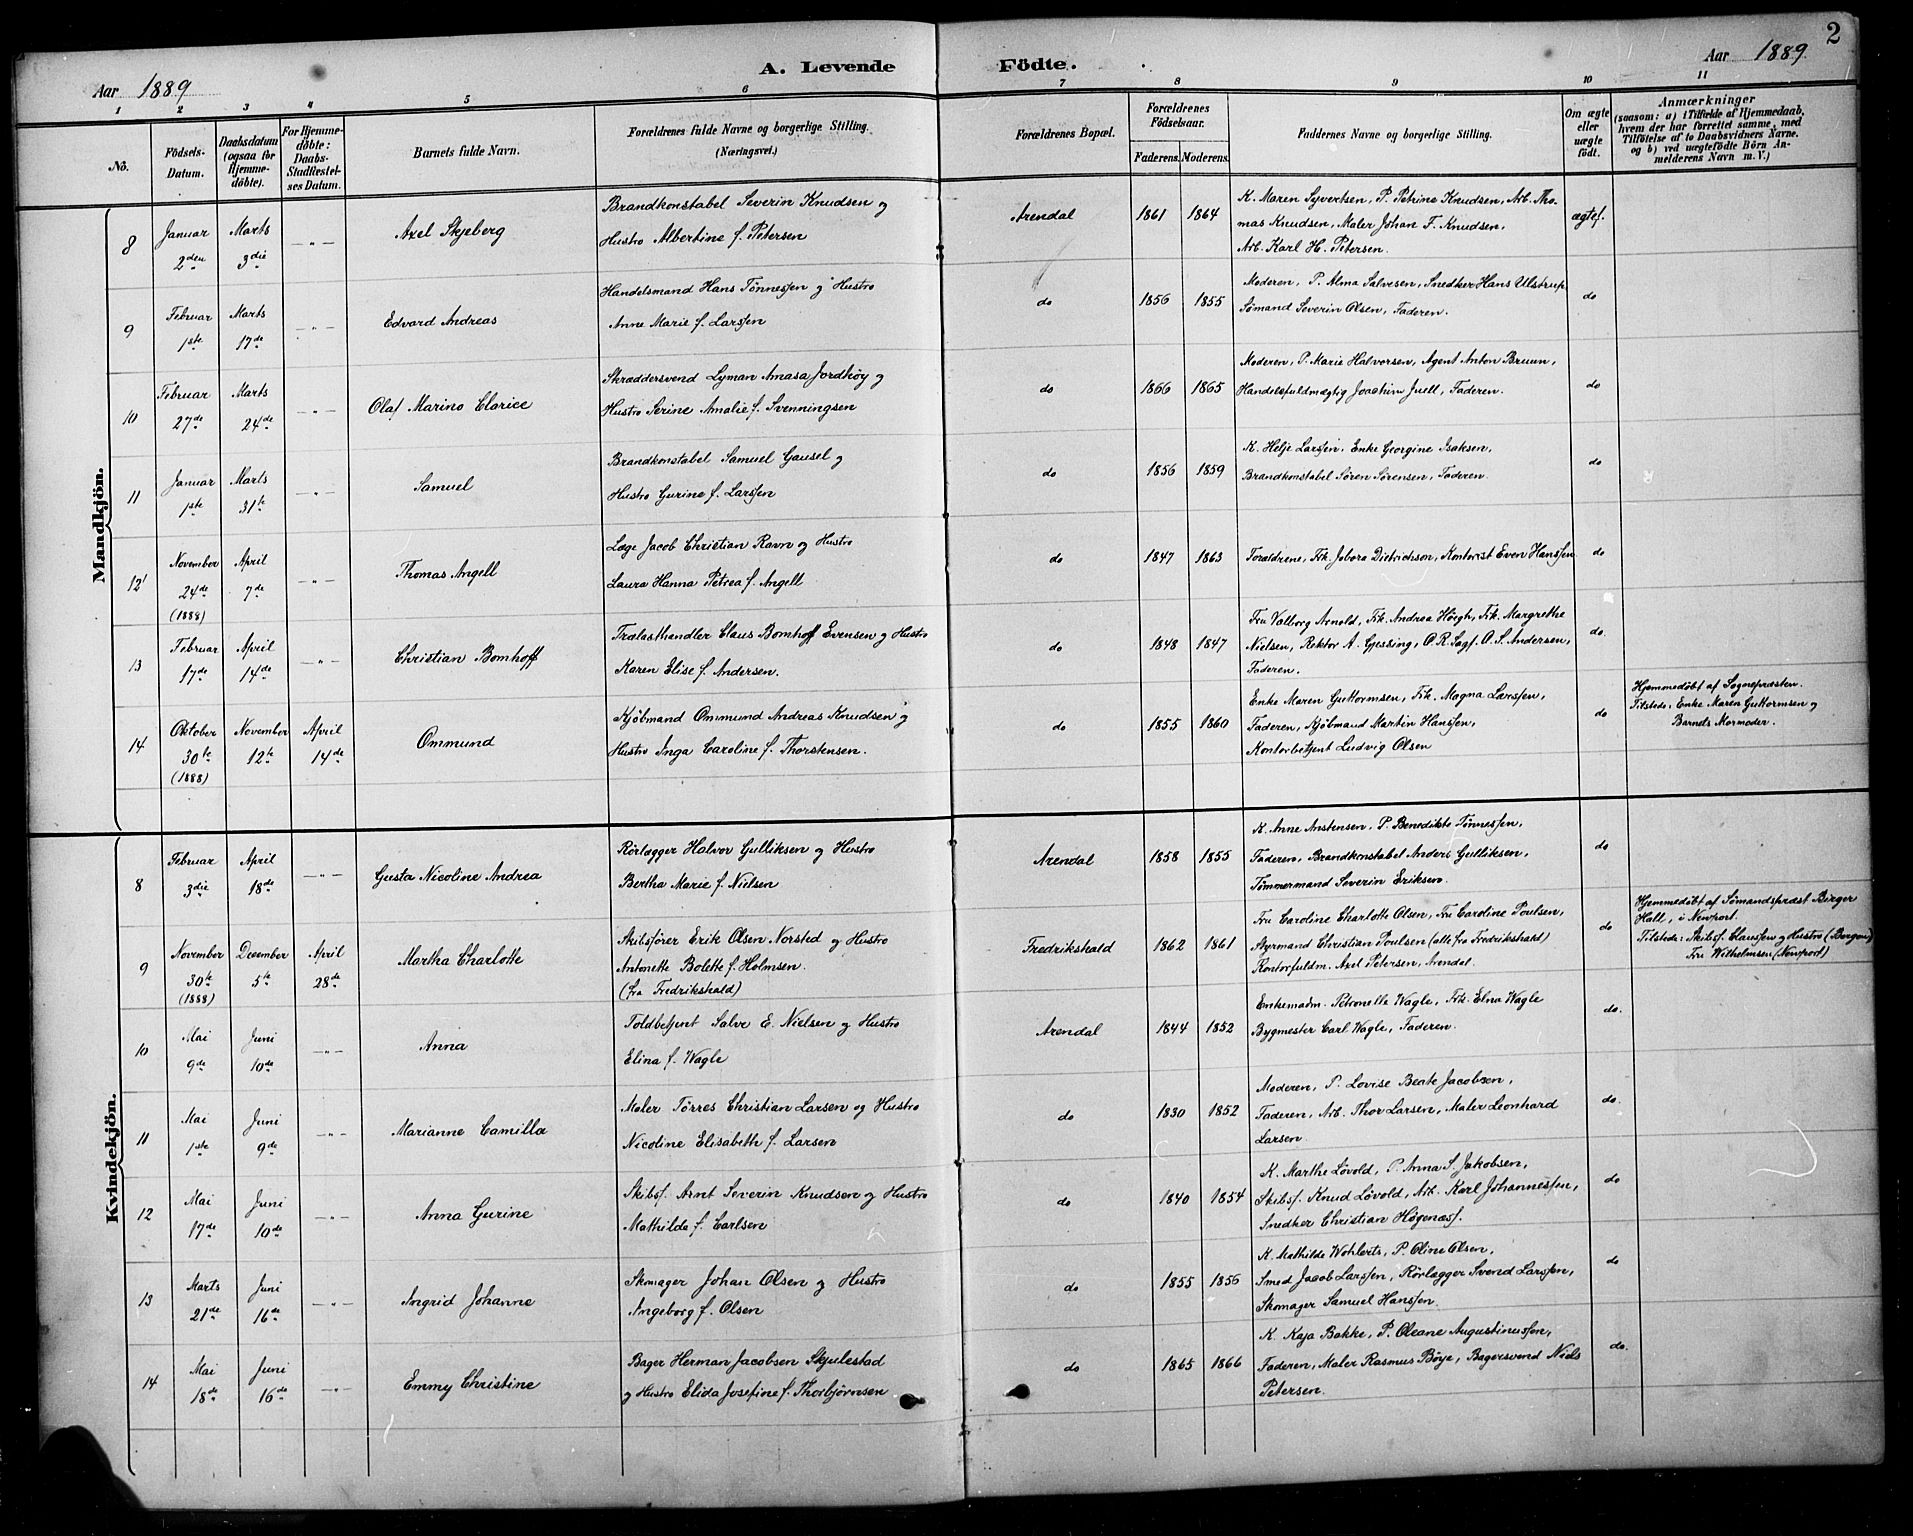 2
Aar 1889
A. Levende Födte.
Aar 1889.
1 2 3 4 5 6 7 8 9 10 11
No.
Födsels-Datum.
Daabsdatum (ogsaa for Hjemme-döbte).
For Hjemme-döbte: Daabs-Stadfæstel-ses Datum.
Barnets fulde Navn.
Forældrenes fulde Navne og borgerlige Stilling.
(Næringsvei.)
Forældrenes Bopæl.
Forældrenes Födselsaar.
Faderens. Moderens.
Faddernes Navne og borgerlige Stilling.
Om ægte eller uægte födt.
Anmærkninger
(saasom: a) i Tilfælde af Hjemmedaab,
hvem der har forrettet samme, med
Tilföielse af to Daabsvidners Navne.
og b) ved uægtefödte Börn An-
melderens Navn m. V.)
Mandkjön.
8 Januar 2den Marts 3die —„— Axel Skjeberg
Brandkonstabel Severin Knudsen og
Hustro Albertine f. Petersen
Arendal 1861 1864
K. Maren Syvertsen, P. Petrine Knudsen, Arb. Tho-
mas Knudsen, Maler Johan F. Knudsen,
Arb. Karl H. Petersen.
ægtef.
9 Februar 1ste Marts 17de —„— Edvard Andreas
Handelsmand Hans Tönnessen og Hustro
Anne Marie f. Larssen
do 1856 1855
Moderen, P. Alma Salvesen, Snedker Hans Ulstrup
Sømand Severin Olsen, Faderen.
do
10 Februar 27de Marts 24de —„— Olaf Marino Clarice
Skræddersvend Lyman Amasa Jordhöy og
Hustro Serine Amalie f. Svenningsen
do 1866 1865
Moderen, P. Marie Halvorsen, Agent Anton Bruun,
Handelsfuldmægtig Joachim Juell, Faderen.
do
11 Januar 1ste Marts 31te —„— Samuel
Brandkonstabel Samuel Gausel og
Hustro Gurine f. Larssen
do 1856 1859
K. Helje Larssen, Enke Georgine Isaksen,
Brandkonstabel Søren Sørensen, Faderen.
do
12 November 24de (1888) April 7de —„— Thomas Angell
Læge Jacob Christian Ravn og Hustro
Laura Hanna Petrea f. Angell
do 1847 1863
Forældrene, Frk. Jobora Dietrichson, Kontorist Even Hanssen
do
13 Februar 17de April 14de —„— Christian Bomhoff
Trælasthandler Claus Bomhoff Evensen og Hustro
Karen Elise f. Andersen.
do 1848 1847
Fru Valborg Arnold, Frk. Andrea Höegh, Frk. Margrethe
Nielsen, Rektor A. Gjessing, O. R. Sagf. A. S. Andersen,
Faderen.
do.
14 Oktober 30te (1888) November 12te April 14de Ommund
Kjöbmand Ommund Andreas Knudsen og
Hustro Inga Caroline f. Thorstensen.
do 1855 1860
Enke Maren Guttormsen, Frk. Magna Larssen,
Faderen, Kjöbmand Martin Hanssen,
Kontorbetjent Ludvig Olsen
do
Hjemmedøbt af Sognepræsten.
Tilstede: Enke Maren Guttormsen og
Barnets Mormoder.
Kvindekjön.
8 Februar 3die April 18de —„— Gusta Nicoline Andrea
Rörlægger Halvor Gulliksen og Hustro
Bertha Marie f. Nielsen
Arendal 1858 1855
K. Anne Anstensen, P. Benedikte Tönnessen,
Faderen, Brandkonstabel Anders Gulliksen,
Tömmermand Severin Eriksen.
do
9 November 30te (1888) December 5te April 28de Martha Charlotte
Skibsfører Erik Olsen Norsted og Hustro
Antonette Bolette f. Holmsen.
(fra Fredrikshald)
Fredrikshald 1862 1861
Fru Caroline Charlotte Olsen, Fru Caroline Poulsen,
Styrmand Christian Poulsen (alle fra Fredrikshald)
Kontorfuldm. Axel Petersen, Arendal.
do
Hjemmedøbt af Sømandspræst Birger
Hall, i Newport.
Tilstede: Skibsf. Claussen og Hustro (Bergen)
Fru Wilhelmsen (Newport)
10 Mai 9de Juni 10de —„— Anna
Toldbetjent Salve E. Nielsen og Hustro
Elina f. Wagle
Arendal 1844 1852
Enkemadm. Petronelle Wagle, Frk. Elna Wagle
Bygmester Carl Wagle, Faderen.
do.
11 Mai 1ste Juni 9de —„— Marianne Camilla
Maler Tørres Christian Larsen og Hustro
Nicoline Elisabeth f. Larsen
do 1830 1852
Moderen, P. Lovise Beate Jacobsen,
Faderen, Arb. Thor Larsen, Maler Leonhard
Larsen.
do.
12 Mai 17de Juni 10de —„— Anna Gurine
Skibsf. Arnt Severin Knudsen og Hustro
Mathilde f. Carlsen
do 1840 1854
K. Marthe Lövold, P. Anna S. Jakobsen,
Skibsf. Knud Lövold, Arb. Karl Johannessen,
Snedker Christian Högenæs.
do
13 Marts 21de Juni 16de —„— Ingrid Johanne
Skomager Johan Olsen og Hustro
Ingeborg f. Olsen
do 1855 1856
K. Mathilde Wohlerts, P. Oline Olsen,
Smed Jacob Larssen, Rörlægger Svend Larssen,
Skomager Samuel Hanssen.
do
14 Mai 18de Juni 16de —„— Emmy Christine
Bager Herman Jacobsen Skjulestad
og Hustro Elida Josefine f. Thorbjørnsen
do 1865 1866
K. Kaja Bakke, P. Oleane Augustinussen,
Faderen, Maler Rasmus Böje, Bagersvend Niels
Petersen.
do.